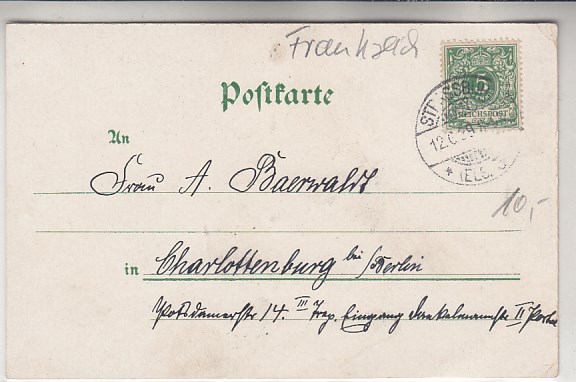 Frankreich
Postkarte
5
REICHSPOST
STRASSB
12.6.99
* (ELS.)
An
Frau A. Baerwaldt
10,-
in Charlottenburg bei/Berlin
Potsdamerstr 14. III Trep. Eingang Dankelmannstr II